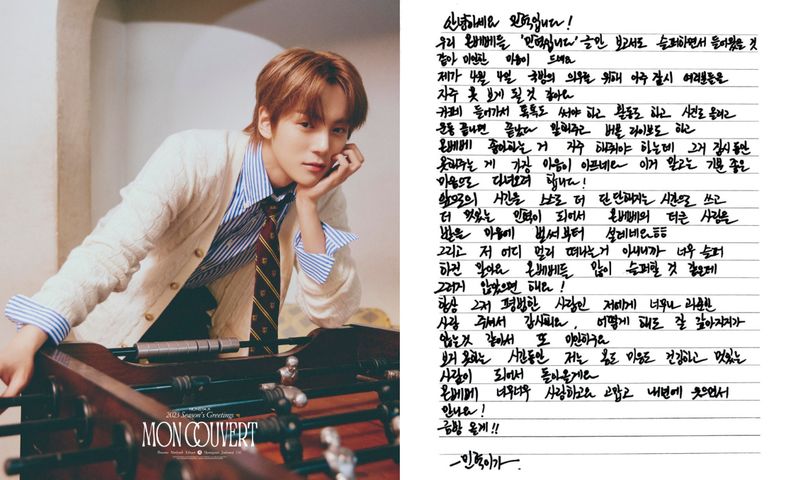 MONSTA X
2023 Season's Greetings
MON COUVERT
안녕하세요 민혁입니다!
우리 몬베베들 '민혁입니다' 글만 보고서도 슬퍼하면서 들어왔을 것
같아 미안한 마음이 드네요
제가 4월 4일 국방의 의무를 위해 아주 잠시 여러분들을
자주 못 보게 될 것 같아요
카페 들어가서 톡톡도 써야 하고 활동도 하고 사진도 올리고
운동 끝나면 끝났다 말해주고 버블 라이브도 하고
몬베베 좋아하는 거 자주 해줘야 하는데 그거 잠시동안
못해주는 게 가장 마음이 아프네요 이거 말고는 기분 좋은
마음으로 다녀오려 합니다!
앞으로의 시간을 스스로 더 단단해지는 시간으로 쓰고
더 멋있는 민혁이 되어서 몬베베의 더 큰 사랑을
받을 마음에 벌써부터 설레네요ㅎㅎ
그리고 저 어디 멀리 떠나는거 아니니까 너무 슬퍼
하진 말아요 몬베베들 많이 슬퍼할 것 같은데
그러지 않았으면 해요!
항상 그저 평범한 사람인 저에게 너무나 과분한
사랑 주셔서 감사해요, 어떻게 해도 다 갚아지지가
않는것 같아서 또 미안하구요
보지 못하는 시간동안 저는 몸도 마음도 건강하고 멋있는
사람이 되어서 돌아올게요
몬베베 너무너무 사랑하고요 고맙고 내년에 웃으면서
만나요!
금방 올게!!
-민혁이가-